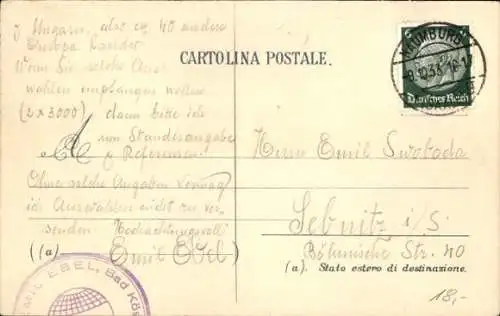 J Ungarn, also ca 40 andere
Europa Länder
Wenn Sie solche Aus
wahlen empfangen wollen
(2x3000) dann bitte ich
um Standesangabe
& Referenzen
Ohne solche Angaben vermag
ich Auswahlen nicht zu ver-
senden Hochachtungsvoll
(a) Emil Ebel)
CARTOLINA POSTALE.
NAUMBURG
Deutsches Reich
Herrn Emil Swoboda
Sebnitz i/S.
Böhmische Str. 40
(a). Stato estero di destinazione.
EMIL EBEL, Bad Kös
18,-